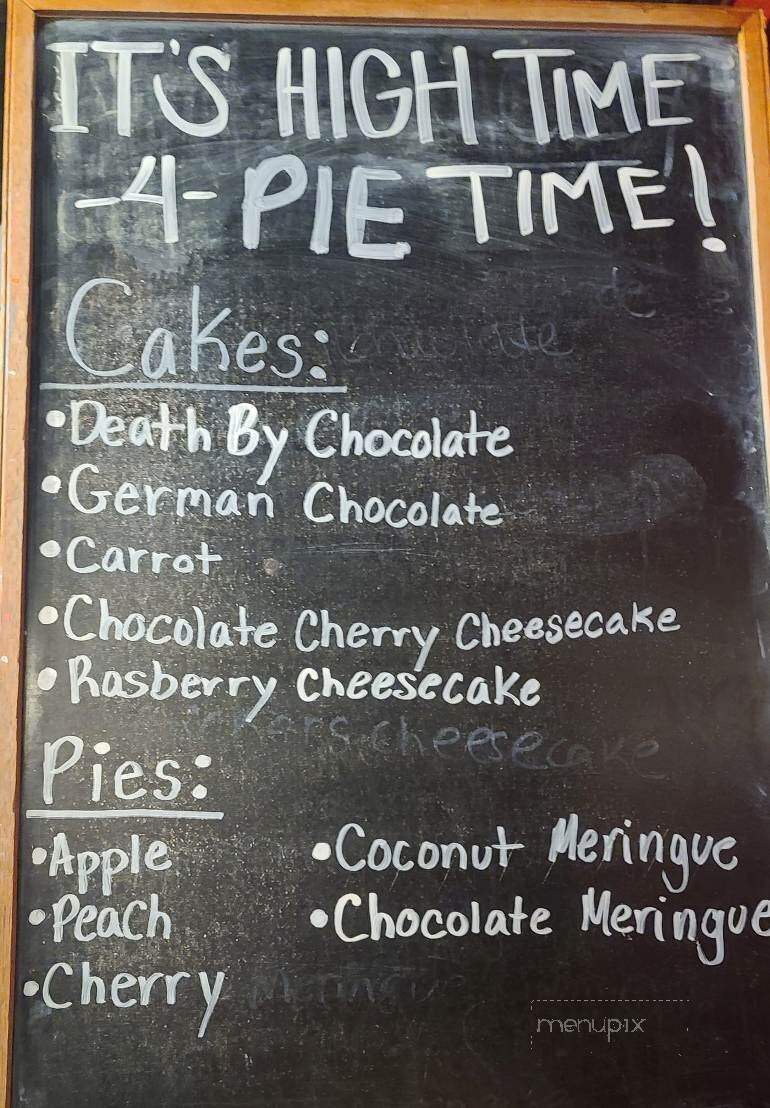 IT'S HIGH TIME
-4- PIE TIME!
Cakes:
•Death By Chocolate
•German Chocolate
•Carrot
•Chocolate Cherry Cheesecake
•Rasberry Cheesecake
cheesecake
Pies:
•Apple
•Peach
•Cherry
•Coconut Meringue
•Chocolate Meringue
menupix